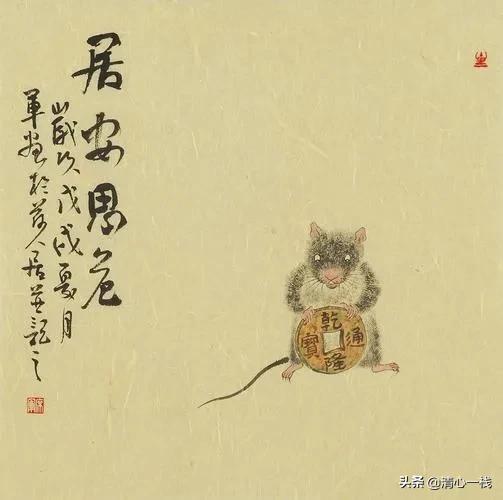 居安思危
歲次戊戌夏月
軍畫於人居並記之
乾隆通寶
头条 @清心一栈